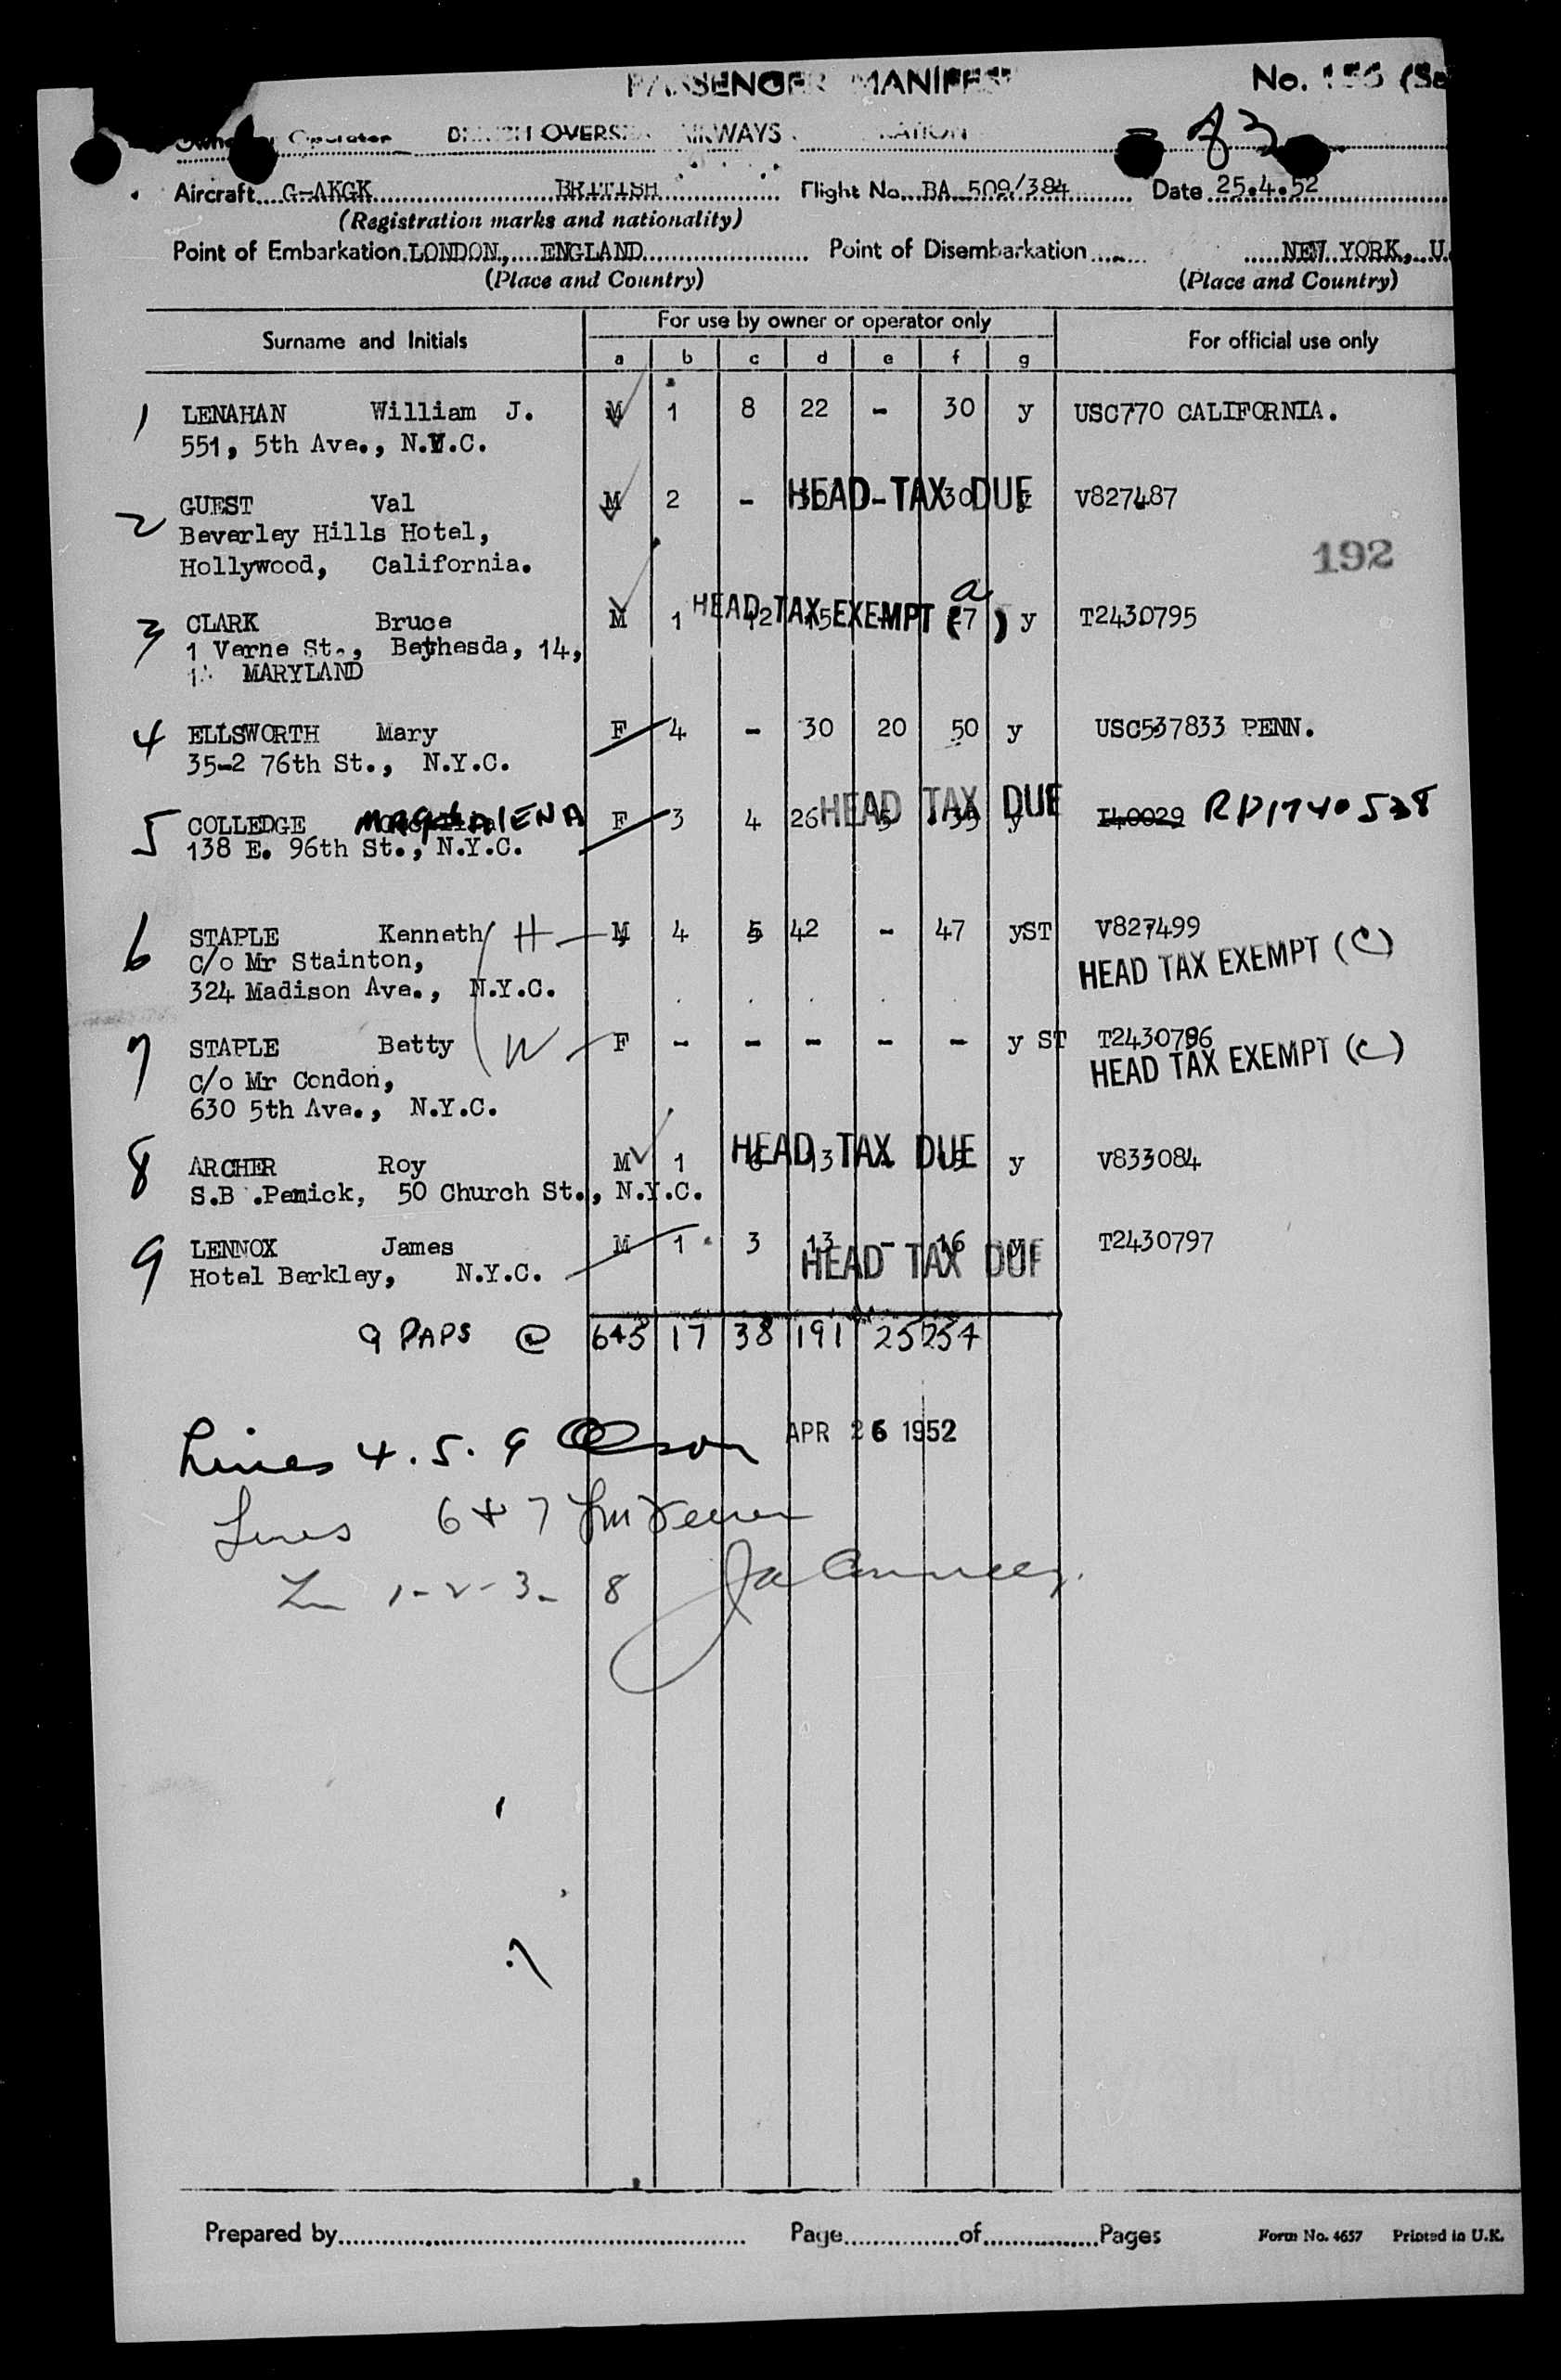 PASSENGER MANIFEST No.
83
Operator OVERSEAS AIRWAYS
Aircraft G-AKGK BRITISH Flight No. BA 509/384 Date 25.4.52
(Registration marks and nationality)
Point of Embarkation LONDON, ENGLAND Point of Disembarkation NEW YORK, U.
(Place and Country) (Place and Country)
Surname and Initials For use by owner or operator only For official use only
a b c d e f g
1 LENAHAN William J. M 1 8 22 - 30 y USC770 CALIFORNIA.
551, 5th Ave., N.Y.C.
2 GUEST Val M 2 - HEAD TAX DUE 30 V827487
Beverley Hills Hotel,
Hollywood, California.
192
3 CLARK Bruce M 1 12 15 HEAD TAX EXEMPT (a) y T2430795
1 Verne St., Bethesda, 14,
MARYLAND
4 ELLSWORTH Mary F 4 - 30 20 50 y USC537833 PENN.
35-2 76th St., N.Y.C.
5 COLLEDGE MAGDALENA F 3 4 26 5 35 y HEAD TAX DUE I40029 RP1740538
138 E. 96th St., N.Y.C.
6 STAPLE Kenneth H M 4 5 42 - 47 yST V827499
c/o Mr Stainton, HEAD TAX EXEMPT (C)
324 Madison Ave., N.Y.C.
7 STAPLE Betty W F - - - - - y ST T2430796
c/o Mr Condon, HEAD TAX EXEMPT (C)
630 5th Ave., N.Y.C.
8 ARCHER Roy M 1 6 13 HEAD TAX DUE y V833084
S.B .Penick, 50 Church St., N.Y.C.
9 LENNOX James M 1 3 13 - 16 y T2430797
Hotel Berkley, N.Y.C. HEAD TAX DUE
9 PAPS @ 645 17 38 191 25 254
APR 26 1952
Lines 4. 5. 9 Olson
Lines 6 + 7
Ln 1-2-3- 8
Prepared by Page of Pages Form No. 4657 Printed in U.K.